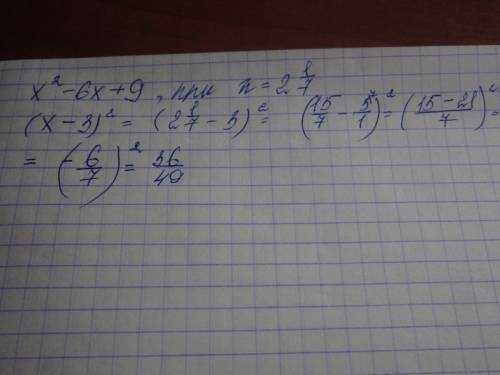 x² - 6x + 9, при x = 2 1/7
(x - 3)² = (2 1/7 - 3)² = (15/7 - 3⁷/1)² = ((15 - 21)/7)² =
= (-6/7)² = 36/49